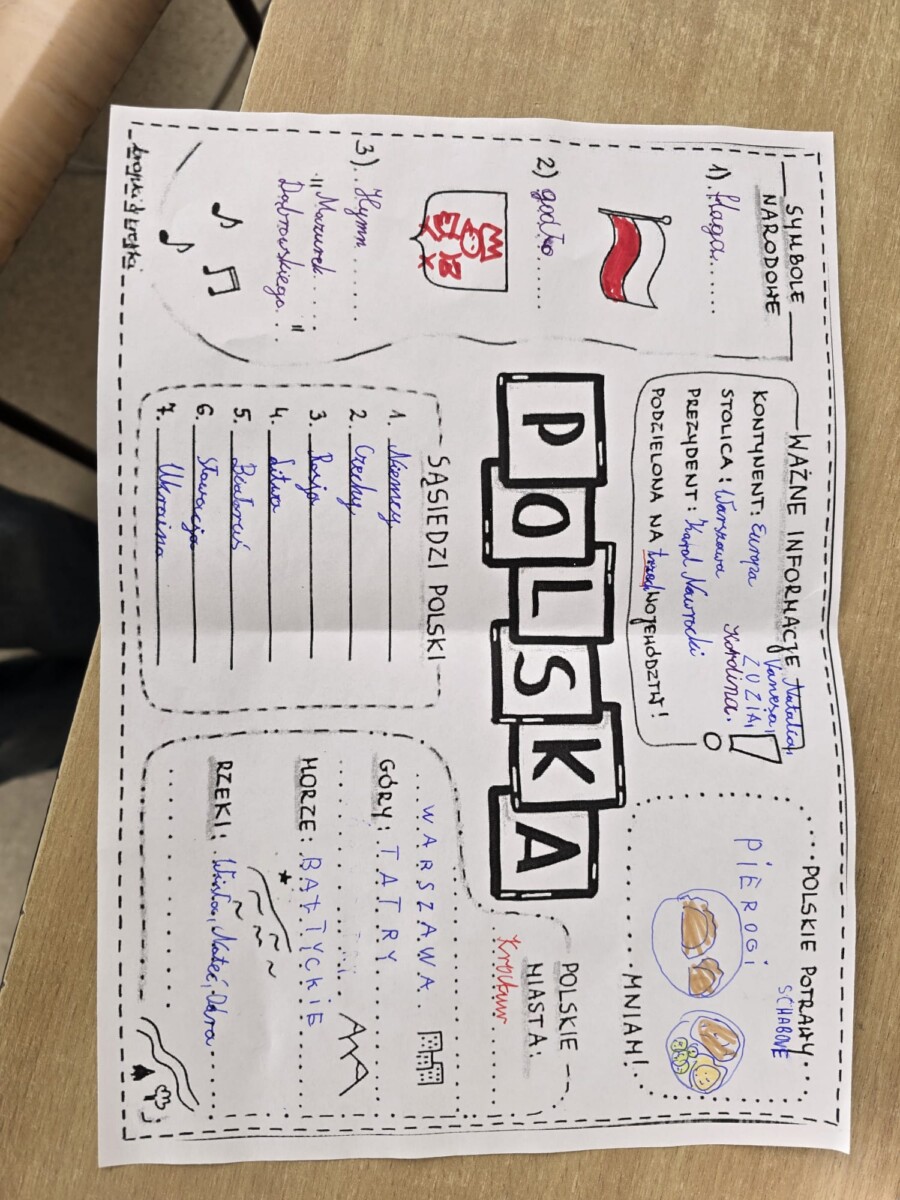 SYMBOLE
NARODOWE
1) flaga
2) godło
3) Hymn
"Mazurek
Dąbrowskiego"
kropki i kreski
WAŻNE INFORMACJE
KONTYNENT: Europa
STOLICA: Warszawa
PREZYDENT: Karol Nawrocki
PODZIELONA NA WOJEWÓDZTW!
Natalia,
Vanesa,
ZUZIA,
Karolina.
POLSKA
SĄSIEDZI POLSKI
1. Niemcy
2. Czechy
3. Rosja
4. Litwa
5. Białoruś
6. Słowacja
7. Ukraina
POLSKIE POTRAWY
SCHABOWE
PIEROGI
MNIAM!
POLSKIE
MIASTA:
WARSZAWA
GÓRY: TATRY
MORZE: BAŁTYCKIE
RZEKI: Wisła, Noteć, Odra